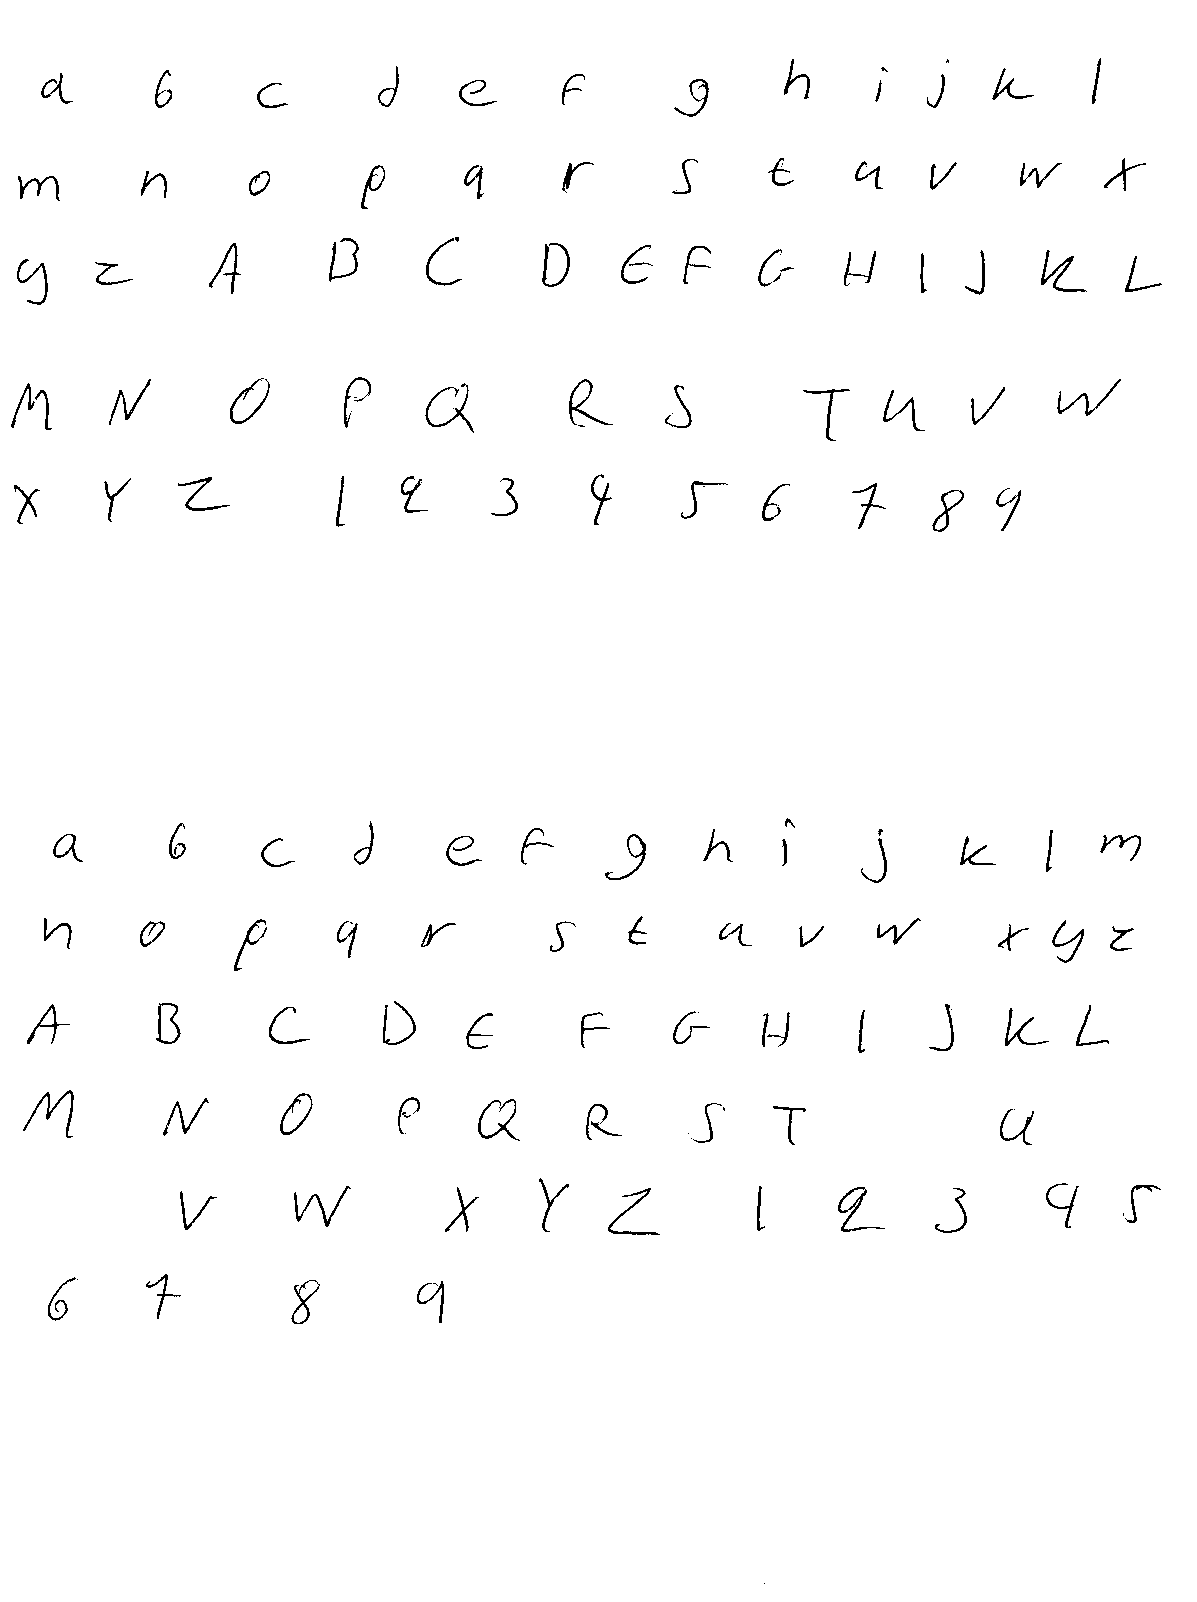 a b c d e f g h i j k l
m n o p q r s t u v w x
y z A B C D E F G H I J K L
M N O P Q R S T U V W
X Y Z 1 2 3 4 5 6 7 8 9
a b c d e f g h i j k l m
n o p q r s t u v w x y z
A B C D E F G H I J K L
M N O P Q R S T U
V W X Y Z 1 2 3 4 5
6 7 8 9